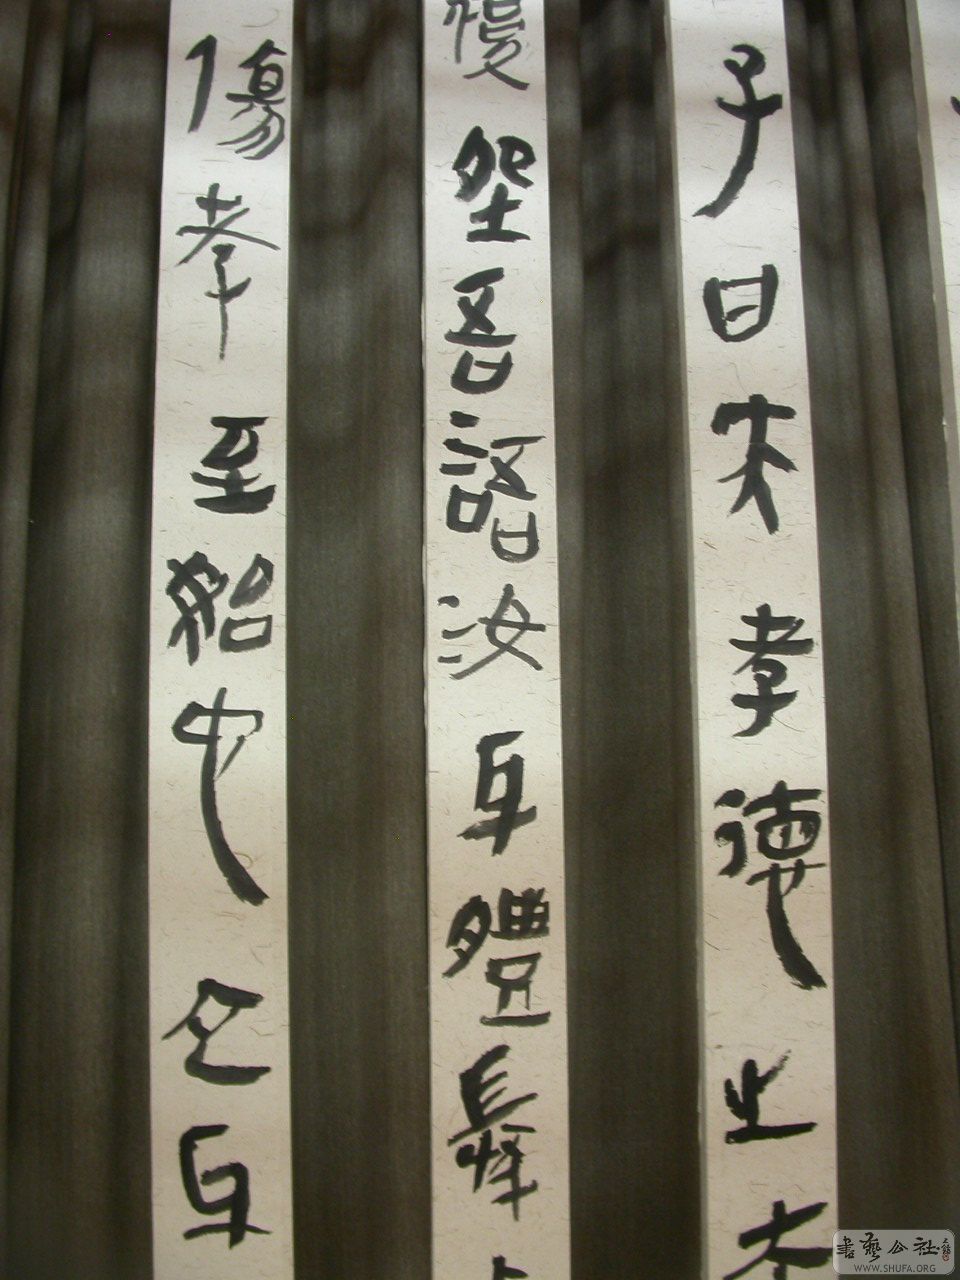 子曰夫孝德之本
復坐吾語汝身體髮
傷孝至始也立身
書藝公社
WWW.SHUFA.ORG